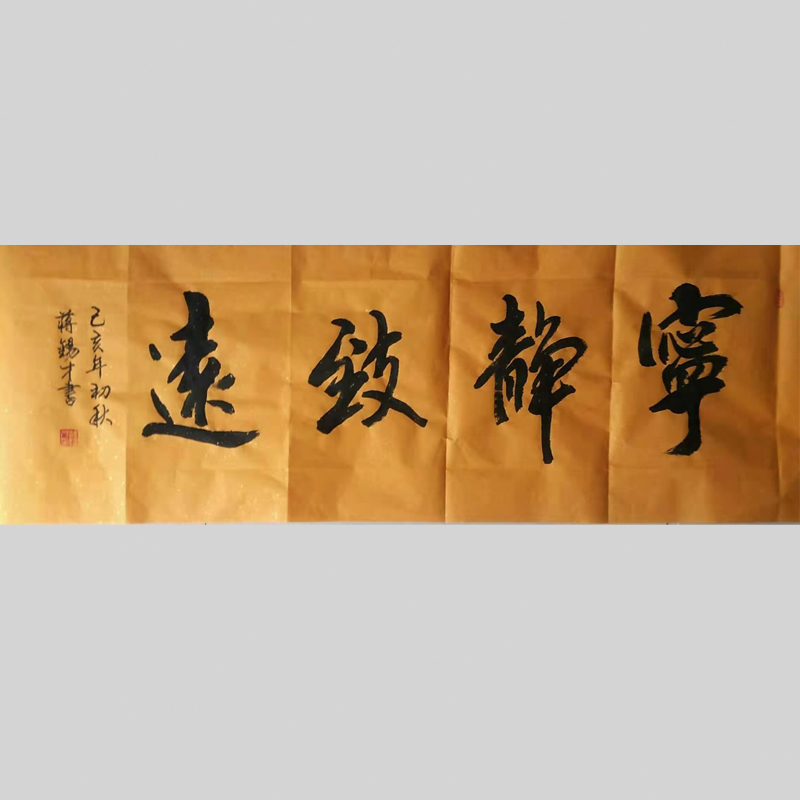 寧靜致遠
己亥年初秋
蔣錫才書